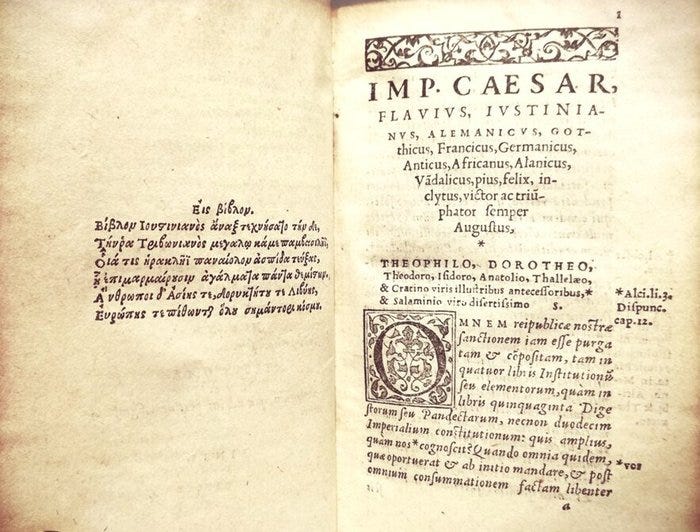 Εἰς βίβλον.
Βίβλον Ιουςινιανὸς ἄναξ τεχνήσατο τήν δε,
Τήνρα Τριβωνιανὸς μεγάλῳ κάμε παμβασιλῆϊ,
Οἷά τις ἡρακλῆϊ παναίολον ἀσπίδα τεύξας,
Ἧς ἐπιμαρμαίρουσιν ἀγάλματα πάντα θεμίστων.
Ἄνθρωποι δ' Ἀσίης τε, δορυκτήτου τε Λιβύης,
Εὐρώπης τε πίθωνται ὅλου σημάντορι κόσμου.
1
IMP. CAESAR,
FLAVIVS, IVSTINIA-
NVS, ALEMANICVS, GOT-
thicus, Francicus, Germanicus,
Anticus, Africanus, Alanicus,
Vãdalicus, pius, felix, in-
clytus, victor ac triũ-
phator semper
Augustus,
*
THEOPHILO, DOROTHEO,
Theodoro, Isidoro, Anatolio, Thallelæo,
& Cratino viris illustribus antecessoribus,*
& Salaminio viro disertissimo S.
*Alci.li.3.
Dispunc.
cap.12.
OMNEM reipublicæ nostræ
sanctionem iam esse purga
tam & cõpositam, tam in
quatuor libris Institutionũ
seu elementorum, quàm in
libris quinquaginta Dige
storum seu Pandectarum, necnon duodecim
Imperialium constitutionum: quis amplius,
quàm nos* cognoscit? Quando omnia quidem,
*vos
quæ oportuerat & ab initio mandare, & post
omnium consummationem factam libenter
a